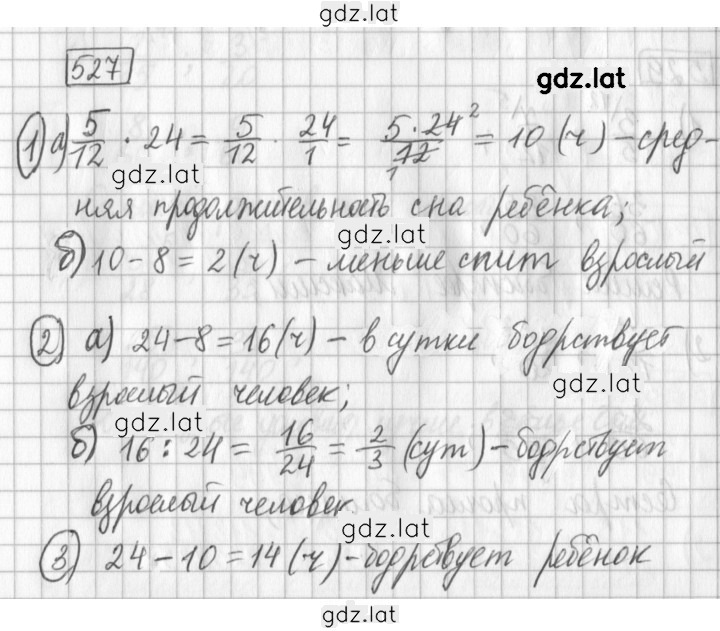 gdz.lat
527
gdz.lat
1) а) 5/12 · 24 = 5/12 · 24/1 = 5·24²/₁12 = 10 (ч) – сред-
gdz.lat
няя продолжительность сна ребёнка;
gdz.lat
б) 10 – 8 = 2 (ч) – меньше спит взрослый
2) а) 24 – 8 = 16 (ч) – в сутки бодрствует
gdz.lat
взрослый человек;
gdz.lat
б) 16 : 24 = 16/24 = 2/3 (сут) – бодрствует
взрослый человек.
gdz.lat
3) 24 – 10 = 14 (ч) – бодрствует ребёнок
gdz.lat